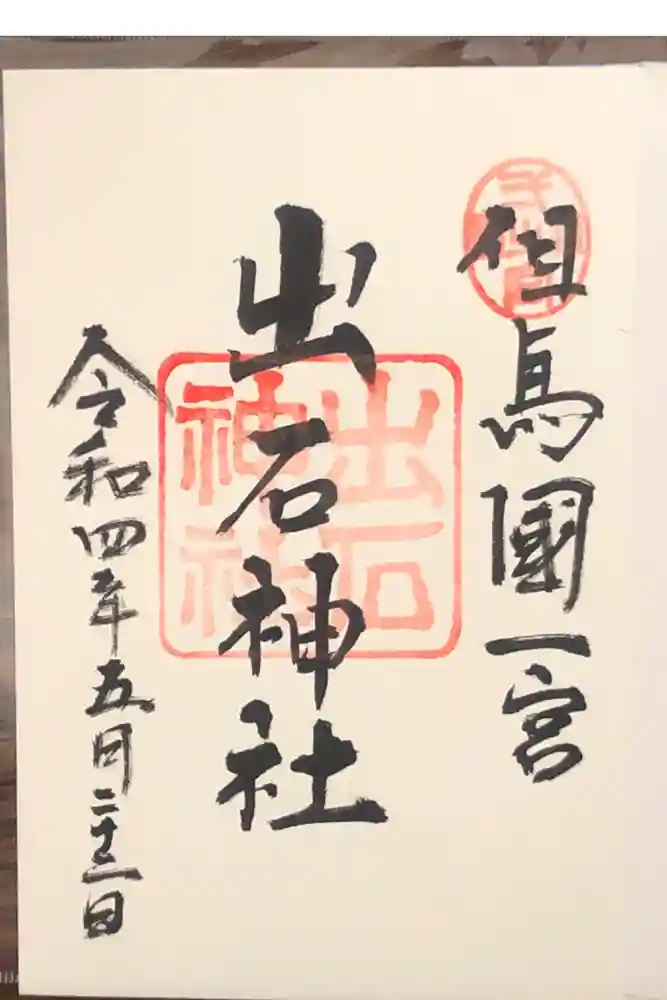 但馬國一宮
出石神社
出石
神社
令和四年五月二十三日